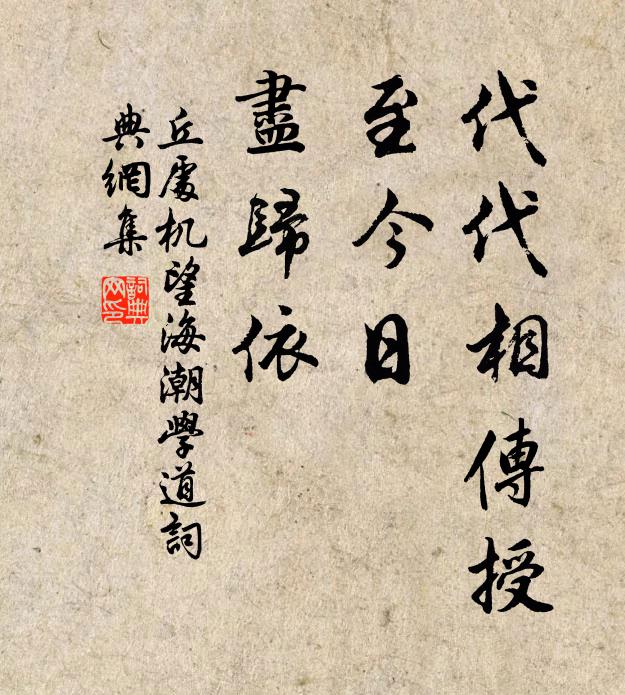 代代相傳授
至今日
盡歸依
丘處机望海潮學道詞
典網集
詞典
网印